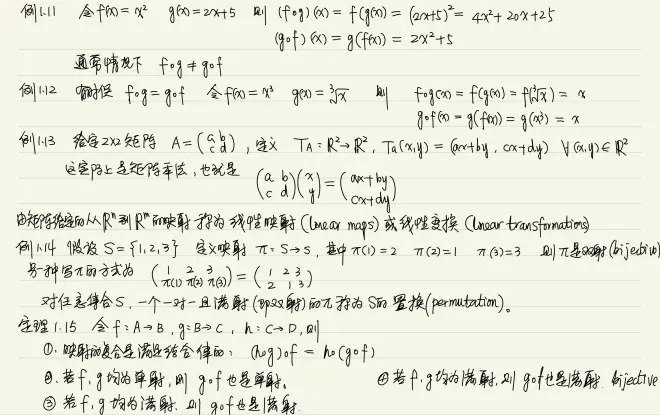 例1.11 令f(x)=x² g(x)=2x+5 则 (f∘g)(x)=f(g(x))=(2x+5)²=4x²+20x+25
(g∘f)(x)=g(f(x))=2x²+5
通常情况下 f∘g≠g∘f
例1.12 有时候 f∘g=g∘f 令f(x)=x³ g(x)=∛x 则 f∘g(x)=f(g(x))=f(∛x)=x
g∘f(x)=g(f(x))=g(x³)=x
例1.13 给定2x2矩阵 A=(a b c d),定义 TA:ℝ²→ℝ²,Ta(x,y)=(ax+by, cx+dy) ∀(x,y)∈ℝ²
这实际上是矩阵乘法,也就是 (a b c d)(x y)=(ax+by cx+dy)
由矩阵给定的从ℝⁿ到ℝᵐ的映射 称为线性映射(linear maps)或线性变换(linear transformations)
例1.14 假设S={1,2,3} 定义映射 π:S→S,其中π(1)=2 π(2)=1 π(3)=3 则π是双射(bijective)
另一种写π的方式为 (1 2 3 π(1) π(2) π(3))=(1 2 3 2 1 3)
对任意集合S,一个一对一且满射(即双射)的π称为S的置换(permutation)。
定理1.15 令f:A→B,g:B→C,h:C→D,则
①.映射的复合是满足结合律的:(h∘g)∘f=h∘(g∘f)
②.若f,g均为单射,则g∘f也是单射。 ④若f,g均为满射,则g∘f也是满射. bijective
③若f,g均为满射.则g∘f也是满射.